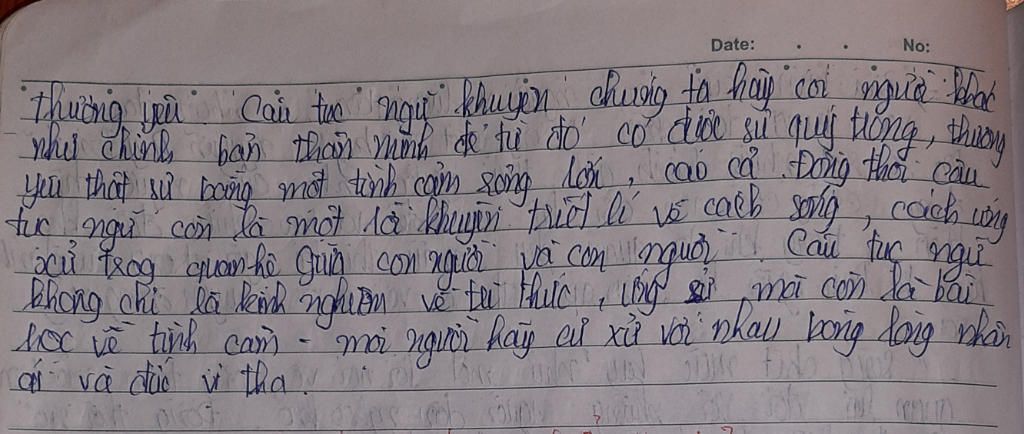 Date: . . No:
thương yêu. Câu tục ngữ khuyên chúng ta hãy coi người khác
như chính bản thân mình để từ đó có được sự quý trọng, thương
yêu thật sự bằng một tình cảm rộng lớn, cao cả. Đồng thời câu
tục ngữ còn là một lời khuyên triết lí về cách sống, cách ứng
xử trog quan hệ giữa con người và con người. Câu tục ngữ
không chỉ là kinh nghiệm về tri thức, ứng xử, mà còn là bài
học về tình cảm - mọi người hãy cư xử với nhau bằng lòng nhân
ái và đức vị tha.